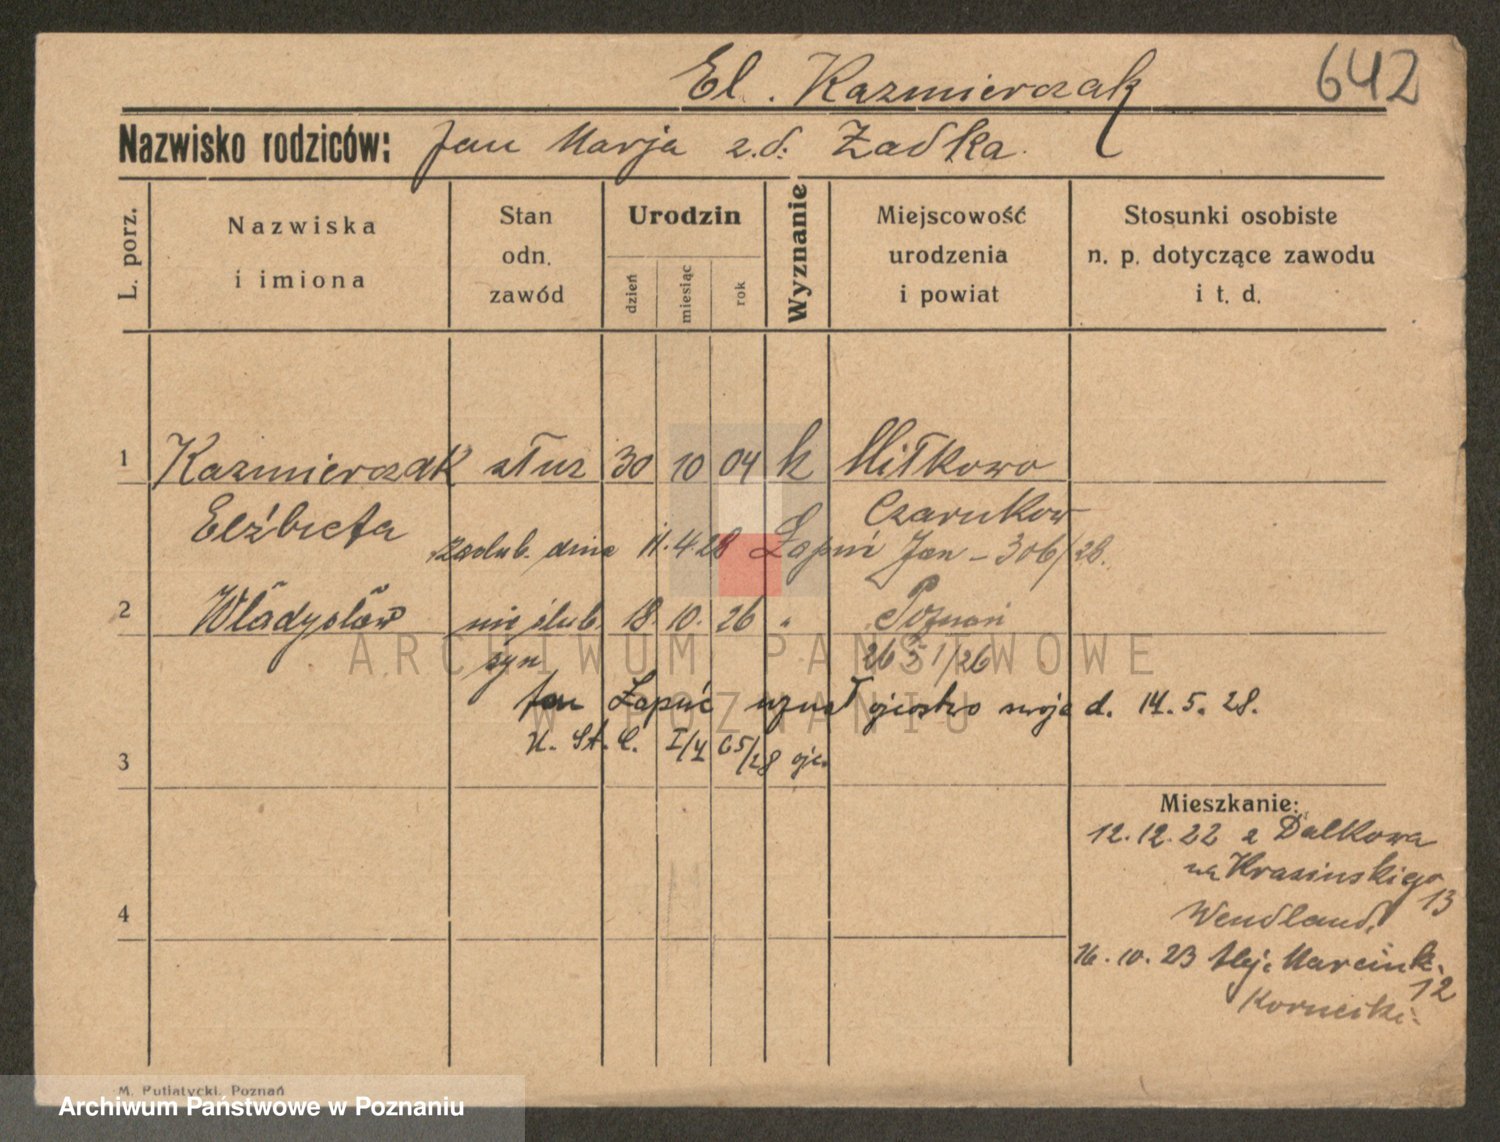 El. Kazmierczak
642
Nazwisko rodziców: Jan Marja z.d. Żadka
L. porz.
Nazwiska i imiona
Stan odn. zawód
Urodzin
dzień
miesiąc
rok
Wyznanie
Miejscowość urodzenia i powiat
Stosunki osobiste n. p. dotyczące zawodu i t. d.
1 Kazmierczak służ 30 10 04 k Miłkowo
Elżbieta Czarnkow
zaślub. dnia 11.4.28 Łapuć Jan - 306/28.
2 Władysław nieślub. 18. 10. 26 " Poznań
syn 2651/26
Jan Łapuć uznał ojcostwo swoje d. 14. 5. 28.
U. St. C. I/4 65/28 ojc.
3
Mieszkanie:
12.12.22 z Dalkowa
na Krasinskiego 13
Wendland,
16. 10. 23 Alej. Marcink. 12
4
M. Putiatycki, Poznań
ARCHIWUM PAŃSTWOWE
W POZNANIU
Archiwum Państwowe w Poznaniu